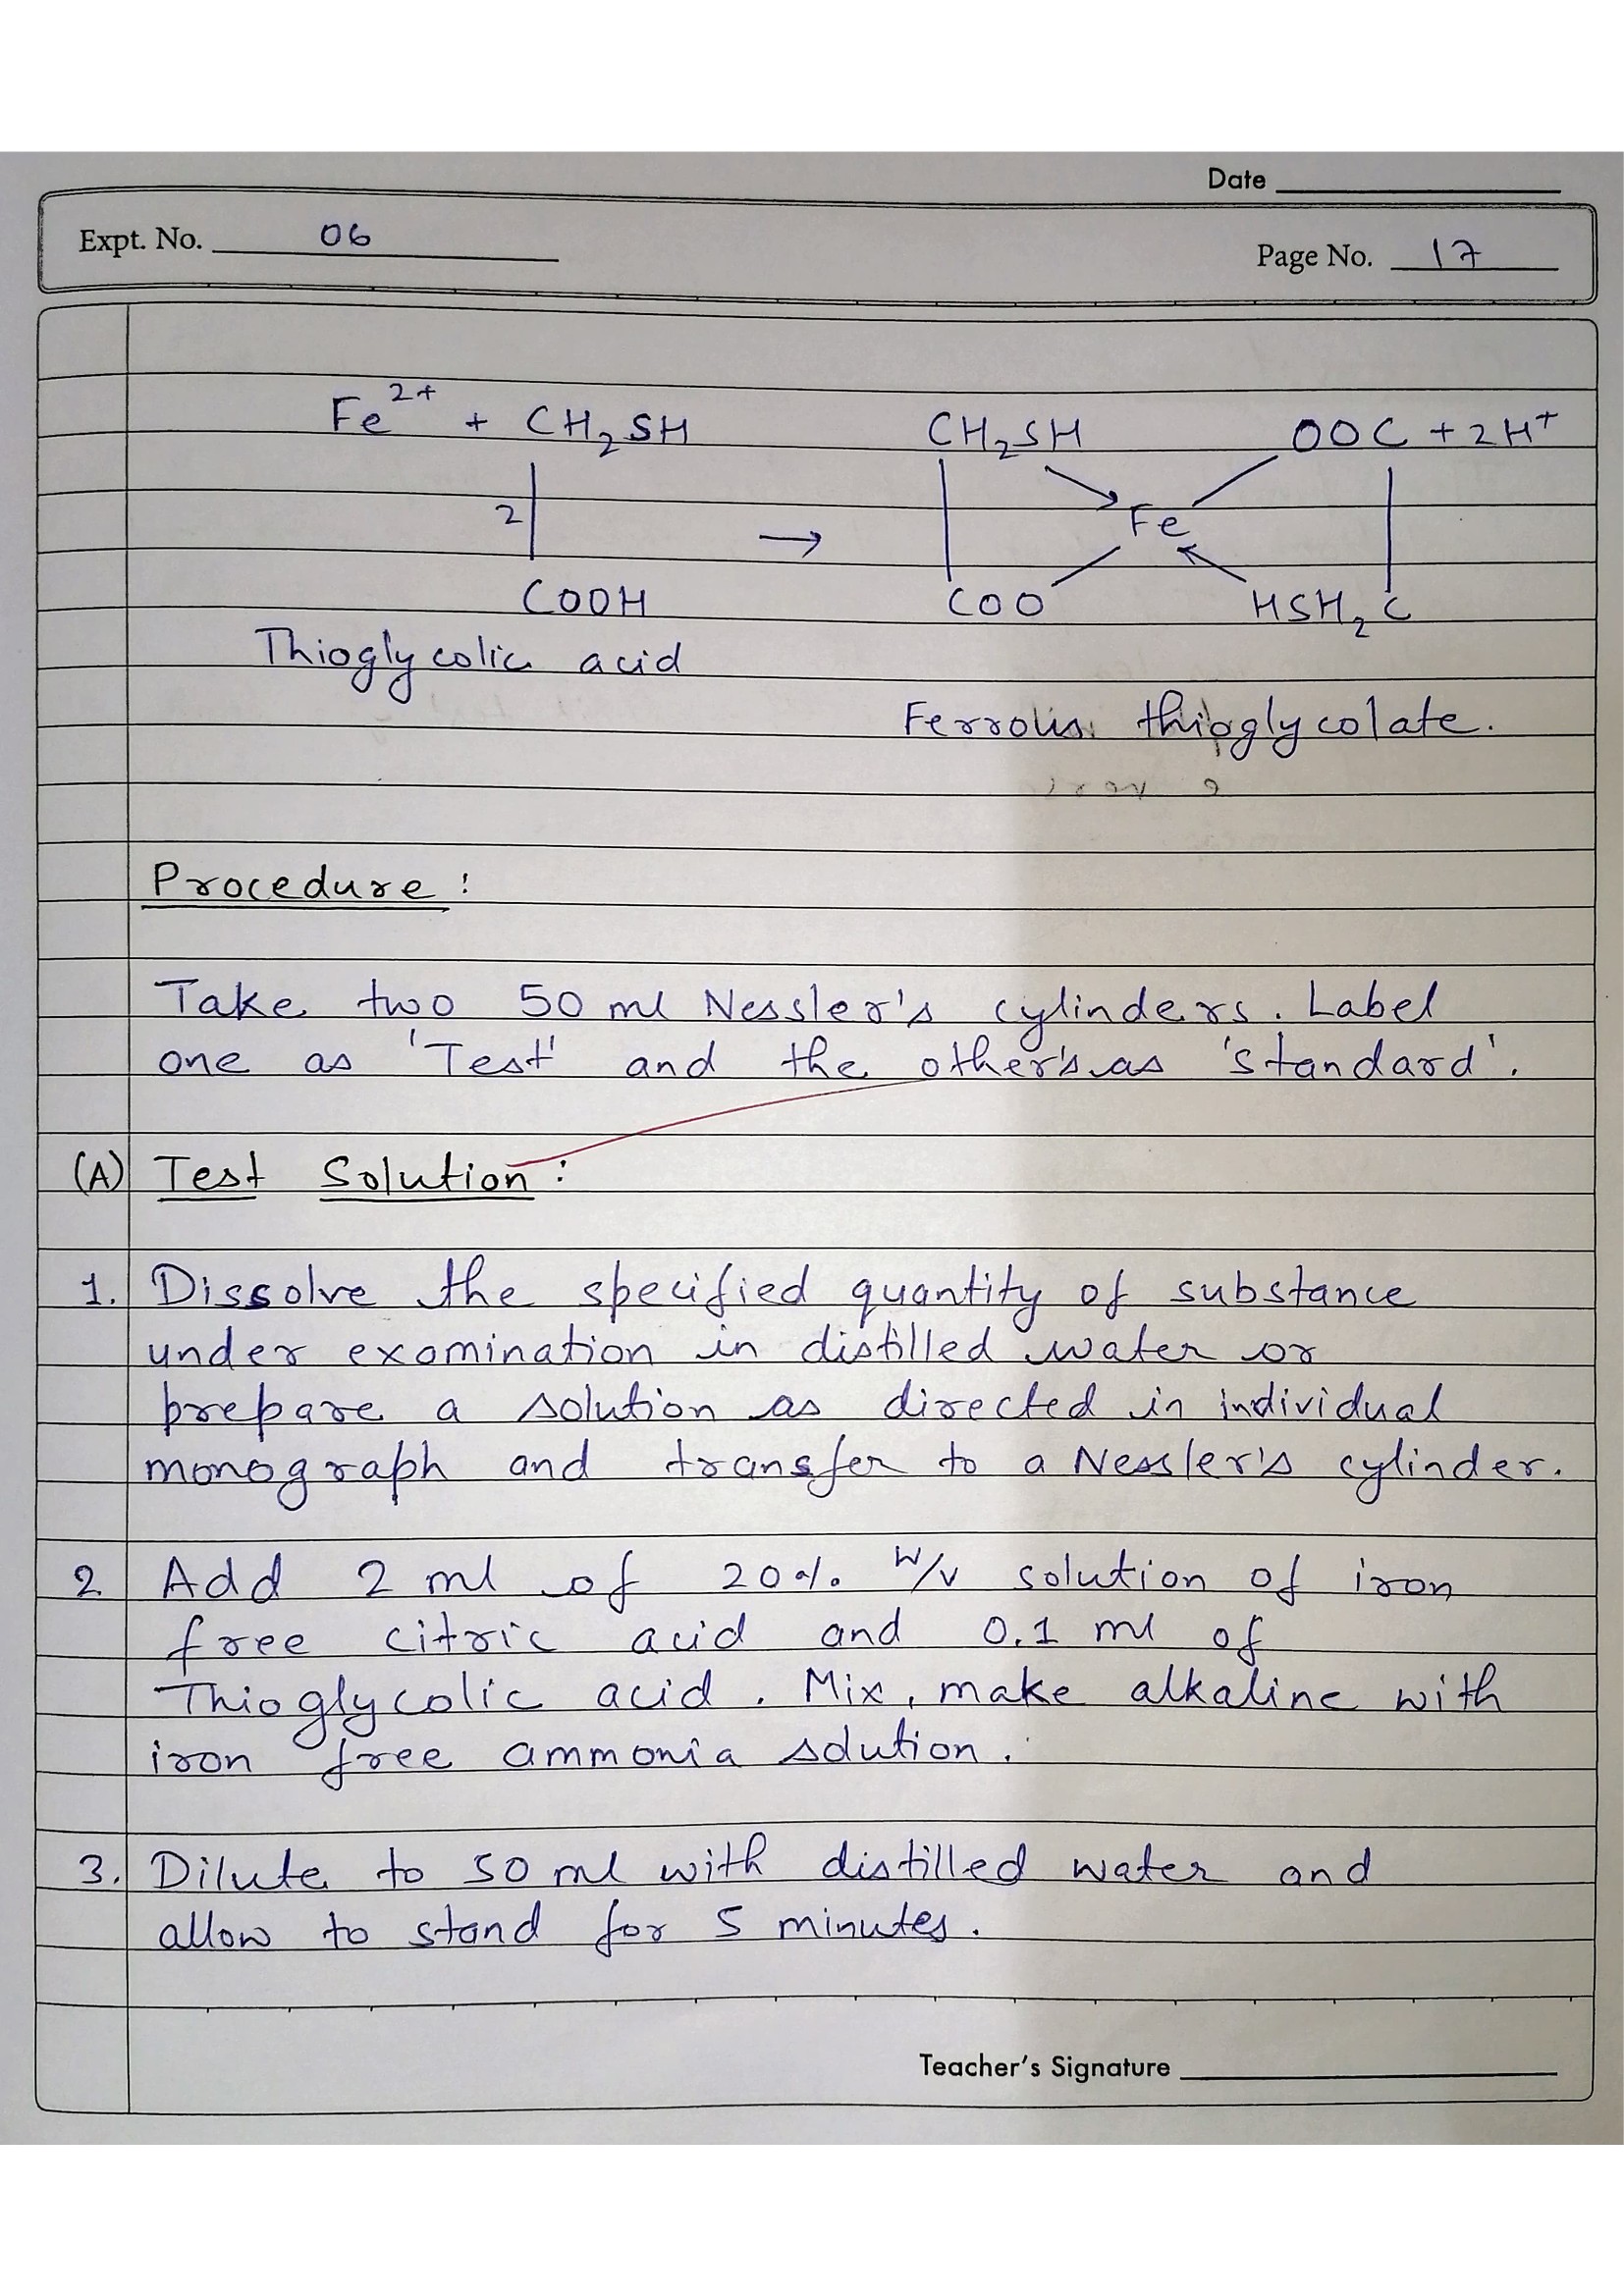 Date
Expt. No. 06
Page No. 17
Fe2+ + CH2SH CH2SH OOC + 2H+
2 → Fe
COOH COO HSH2C
Thioglycolic acid
Ferrous thioglycolate.
Procedure :
Take two 50 ml Nessler's cylinders. Label
one as 'Test' and the other's as 'standard'.
(A) Test Solution :
1. Dissolve the specified quantity of substance
under examination in distilled water or
prepare a solution as directed in individual
monograph and transfer to a Nessler's cylinder.
2 Add 2 ml of 20% W/v solution of iron
free citric acid and 0.1 ml of
Thioglycolic acid. Mix, make alkaline with
iron free ammonia solution.
3. Dilute to 50 ml with distilled water and
allow to stand for 5 minutes.
Teacher's Signature